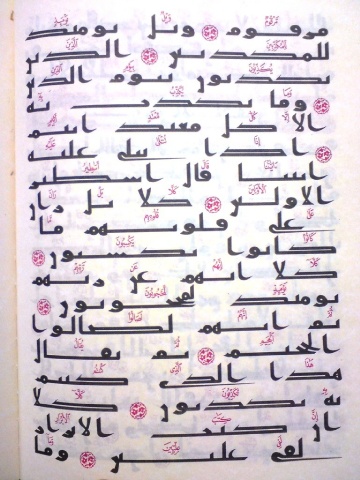 مرقوم ويل يومئذ
للمكذبين الذين
يكذبون بيوم الدين
وما يكذب به
الا كل معتد اثيم
اذا تتلى عليه
ايتنا قال اسطير
الاولين كلا بل ران
على قلوبهم ما
كانوا يكسبون
كلا انهم عن ربهم
يومئذ لمحجوبون
ثم انهم لصالوا
الجحيم ثم يقال
هذا الذي كنتم
به تكذبون كلا
ان كتب الابرار
لفي عليين وما